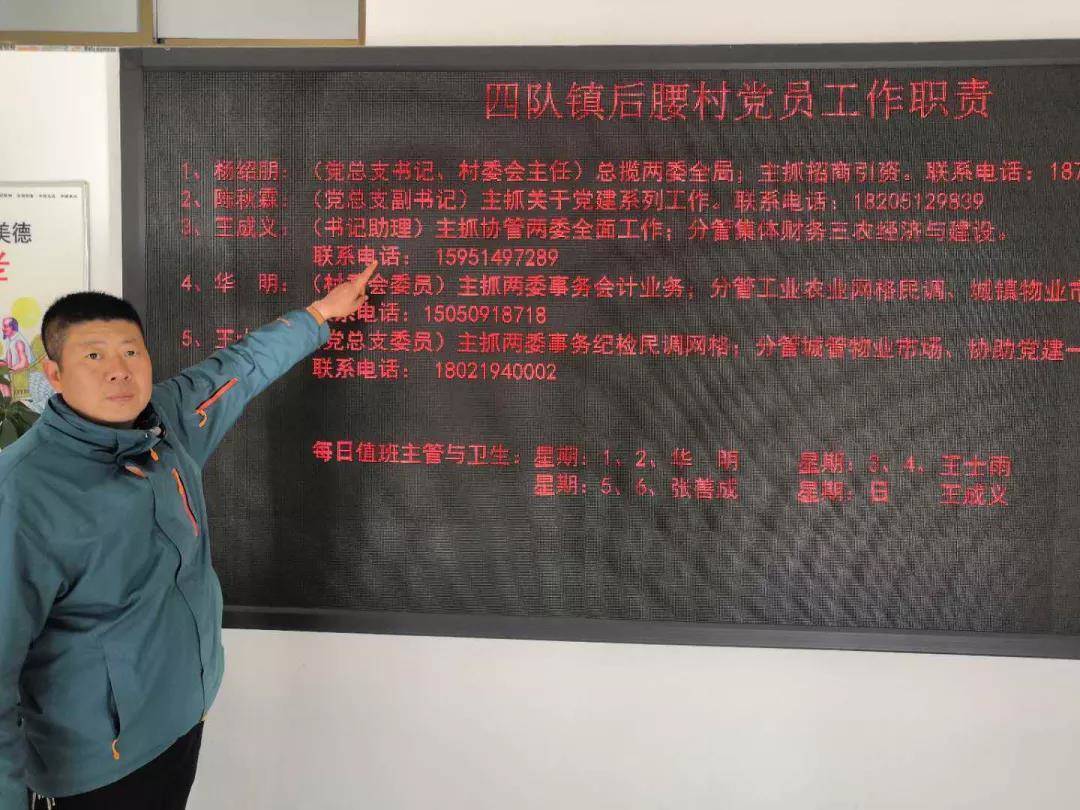 四队镇后腰村党员工作职责
1、杨绍明:（党总支书记、村委会主任）总揽两委全局；主抓招商引资。联系电话：187
2、陈秋霖:（党总支副书记）主抓关于党建系列工作。联系电话：18205129839
3、王成义:（书记助理）主抓协管两委全面工作；分管集体财务三农经济与建设。
联系电话： 15951497289
4、华 明:（村 会委员）主抓两委事务会计业务；分管工业农业网格民调、城镇物业市
系电话：15050918718
5、王 党总支委员）主抓两委事务纪检民调网格；分管城管物业市场、协助党建一
联系电话： 18021940002
每日值班主管与卫生：星期：1、2、华 明 星期：3、4、王士雨
星期：5、6、张善成 星期：日 王成义
美德